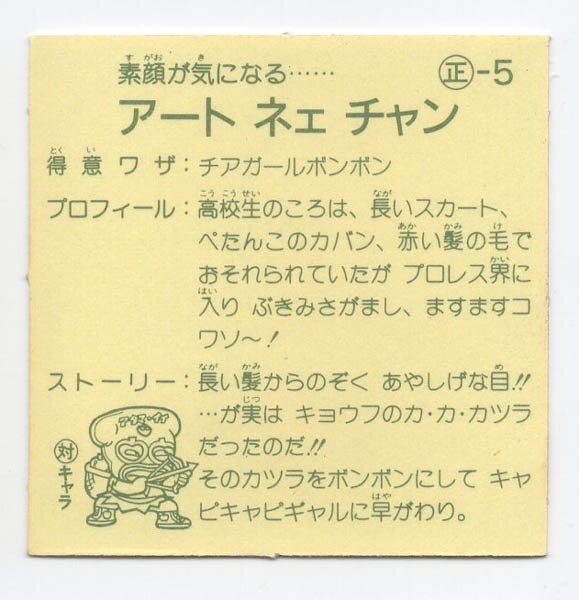 素顔が気になる…… ㊣-5
アート ネェ チャン
得意ワザ：チアガールボンボン
プロフィール：高校生のころは、長いスカート、
ぺたんこのカバン、赤い髪の毛で
おそれられていたが プロレス界に
入り ぶきみさがまし、ますますコ
ワソ〜！
ストーリー：長い髪からのぞく あやしげな目!!
…が実は キョウフのカ・カ・カツラ
だったのだ!!
そのカツラをボンボンにして キャ
ピキャピギャルに早がわり。
対キャラ